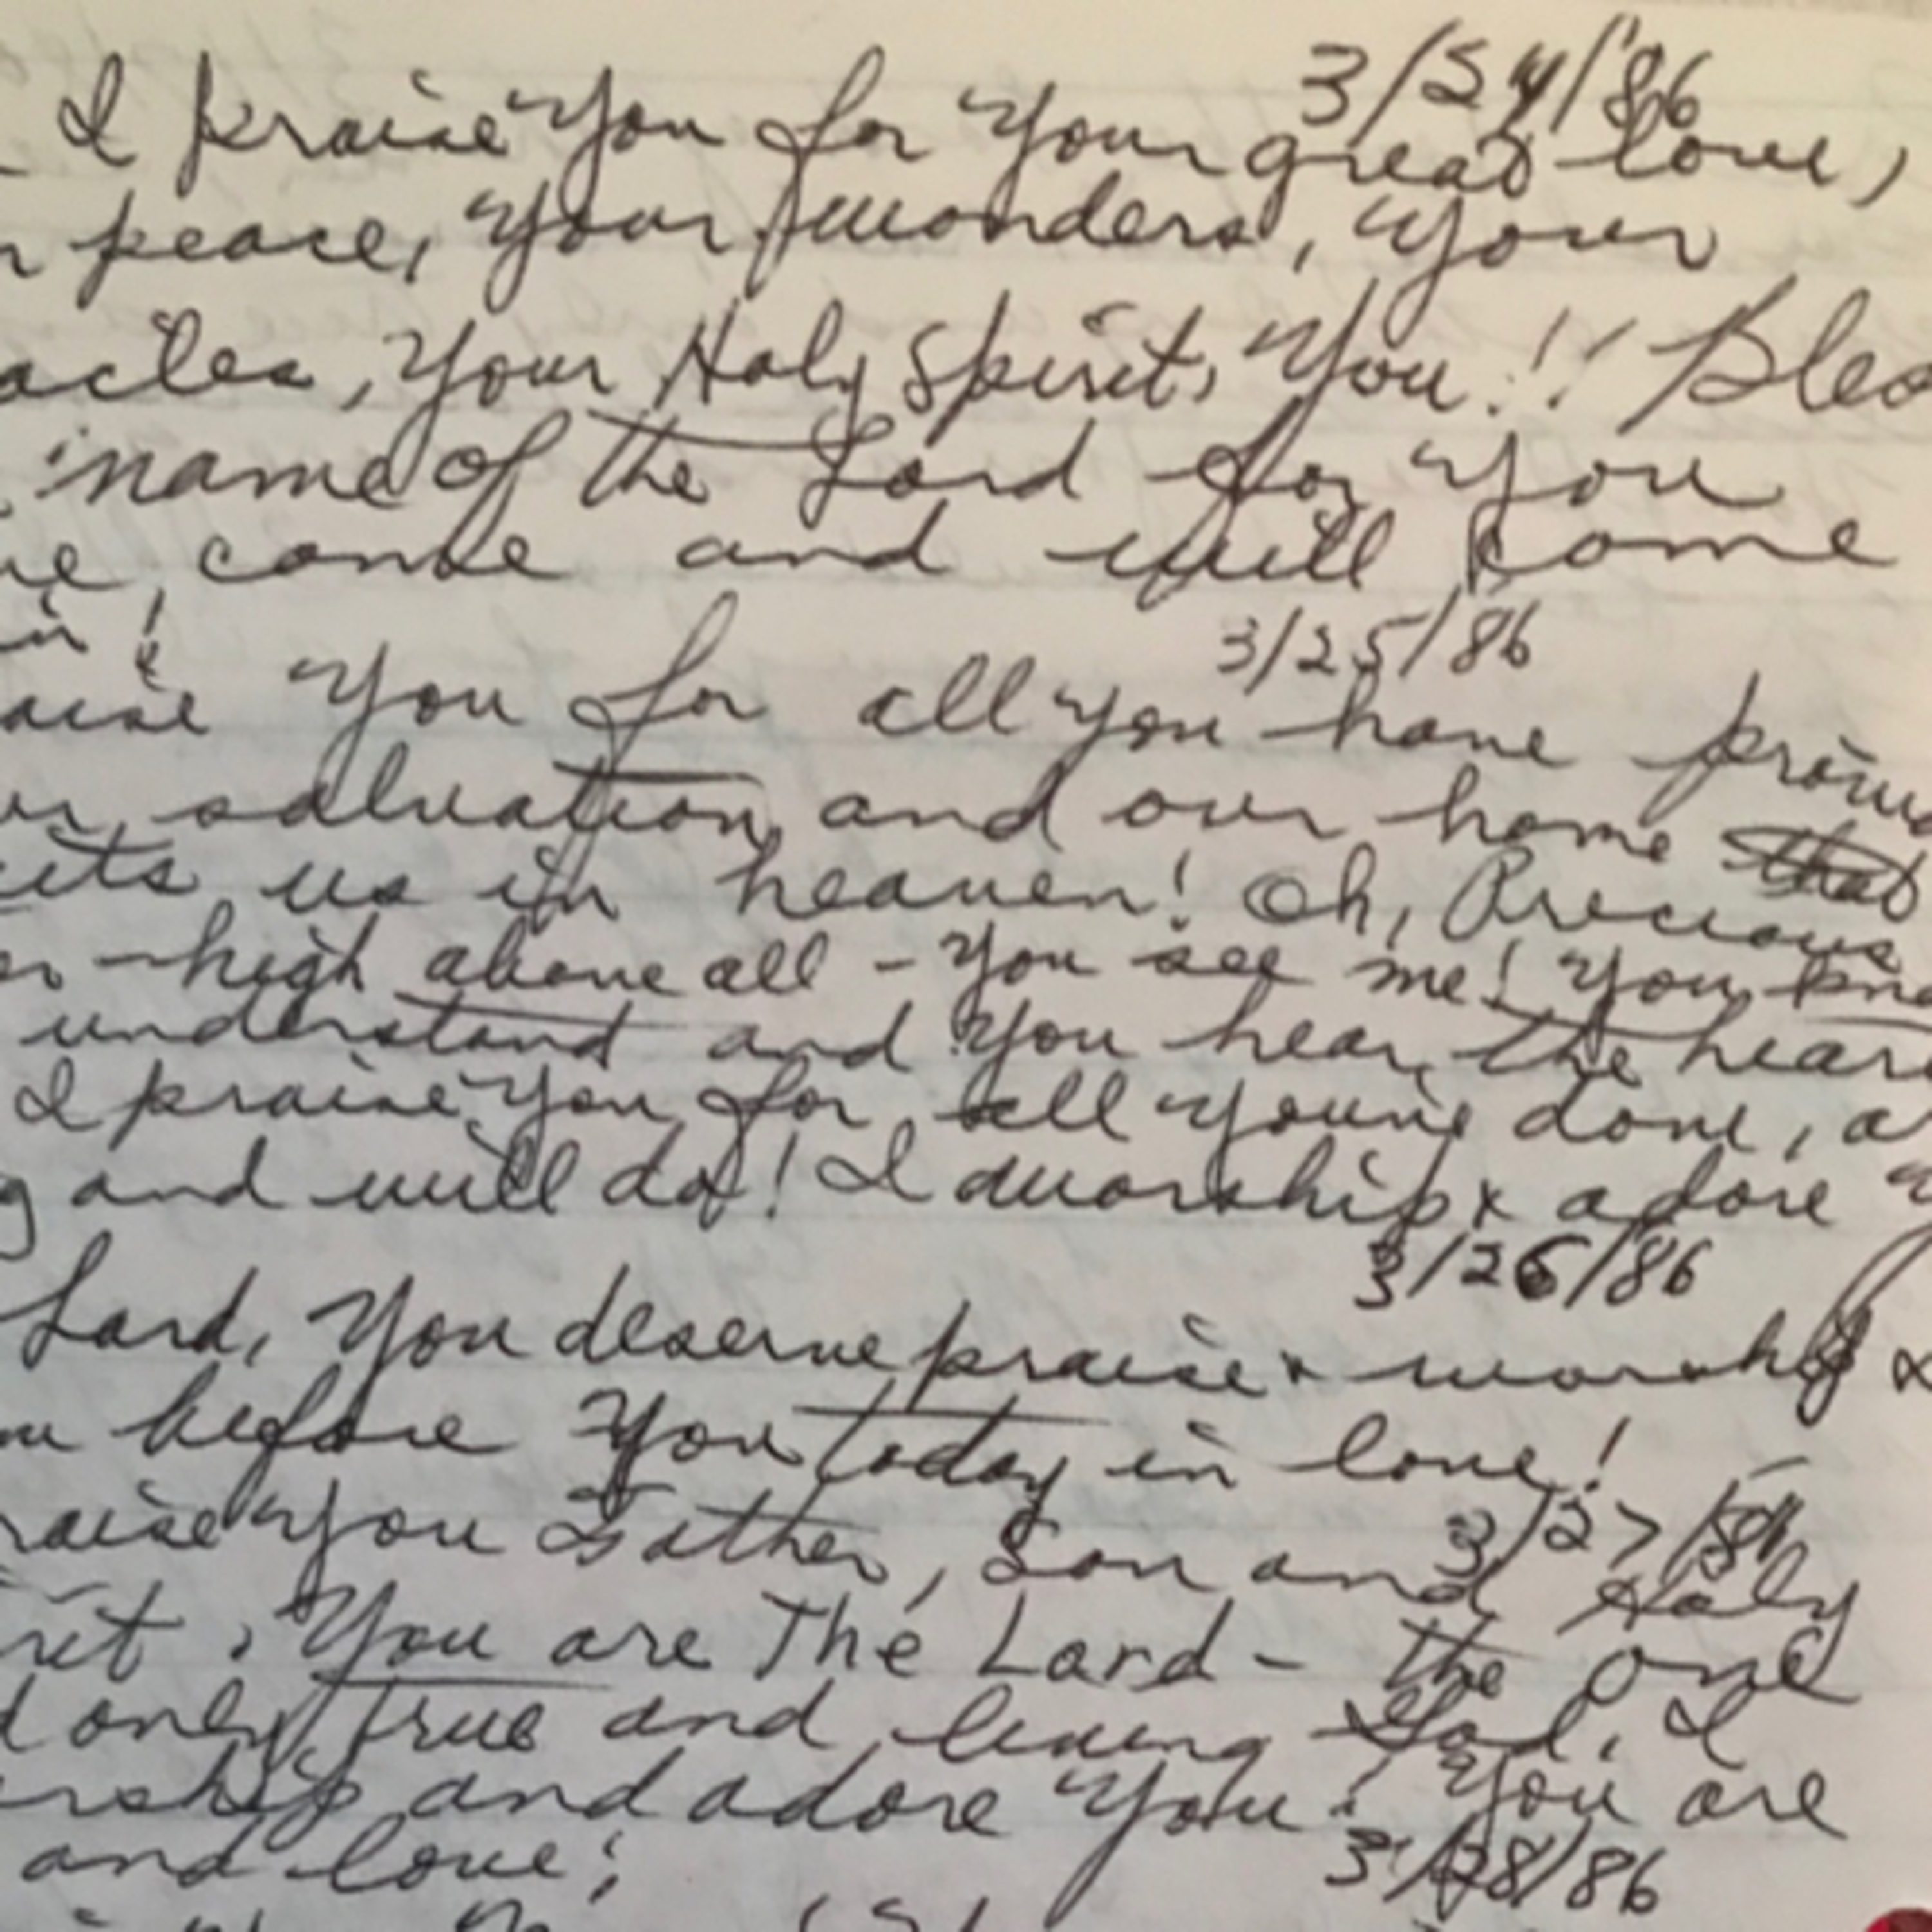 3/24/86
I praise You for Your great love,
peace, Your wonders, Your
acles, Your Holy Spirit, You!! Bles
name of the Lord for You
ve come and will come
in!
3/25/86
aise You for all You have prom
ur salvation and our home that
its us in heaven! Oh, Precious
er - high above all - You see me! You kno
understand and You hear the hear
I praise You for all You've done, ar
g and will do! I worship & adore Y
3/26/86
Lord, You deserve praise & worship &
before You today in love!
3/27/86
raise You Father, Son and Holy
rit. You are The Lord - the one
d only true and living God. I
rship and adore You! You are
and love!
3/28/86